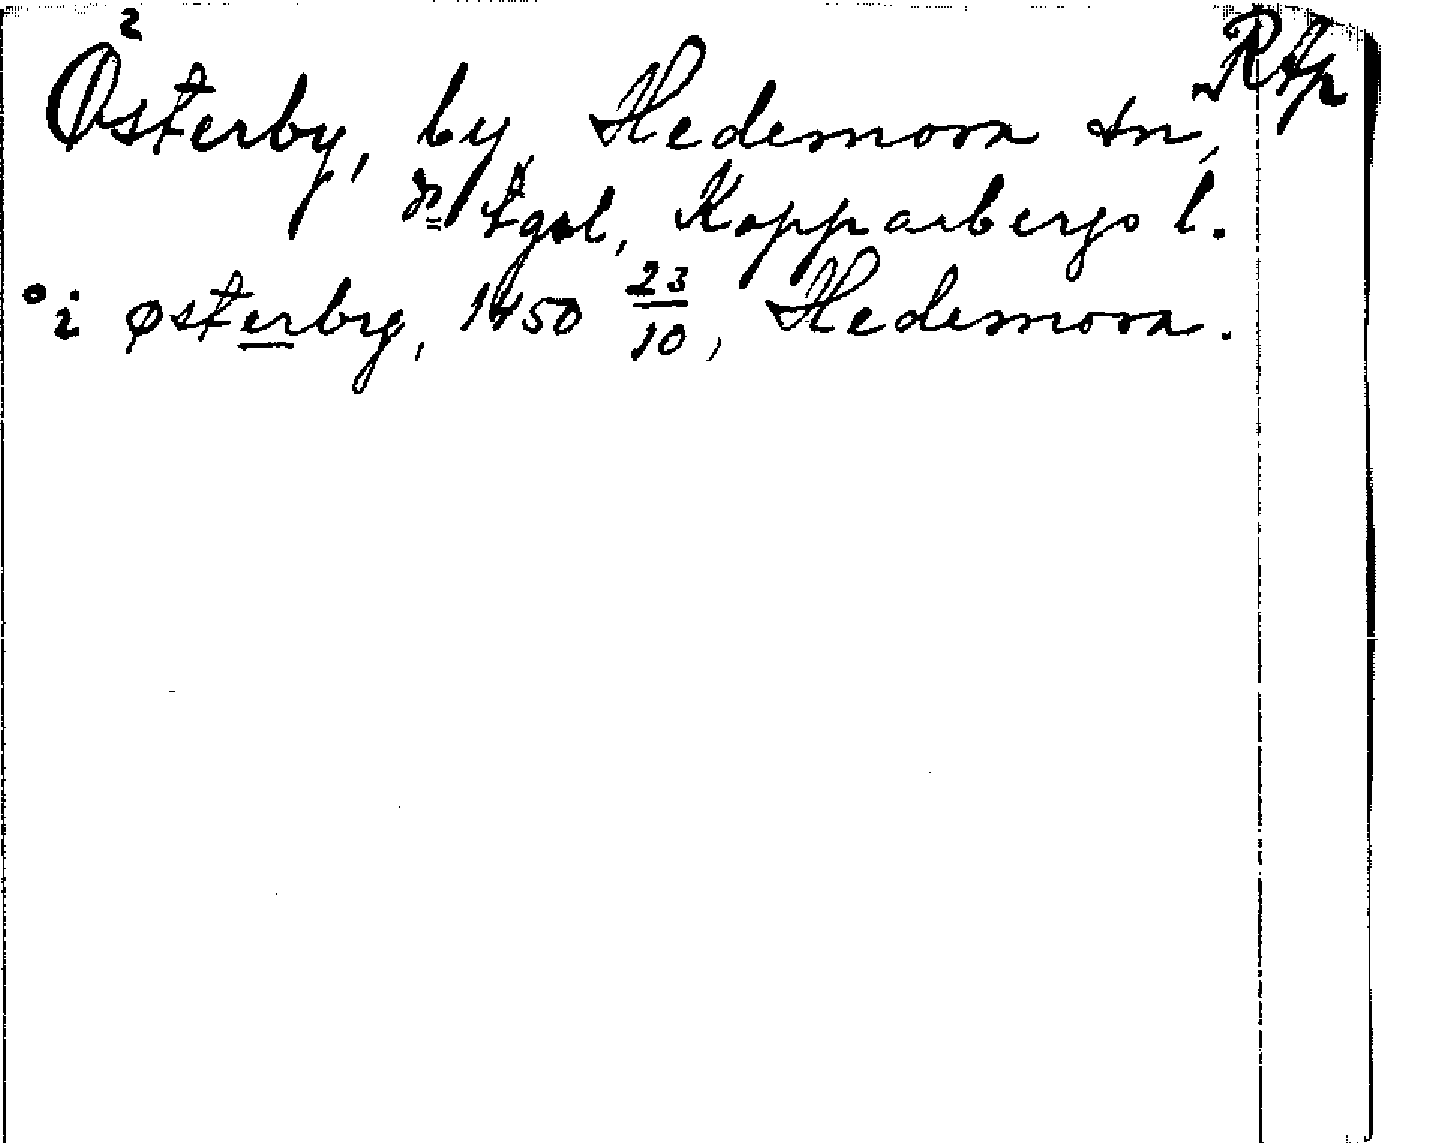 2
Østerby, by, Hedemora sn,
tgsl, Kopparbergs l.
i østerby, 1450 23/10, Hedemora.